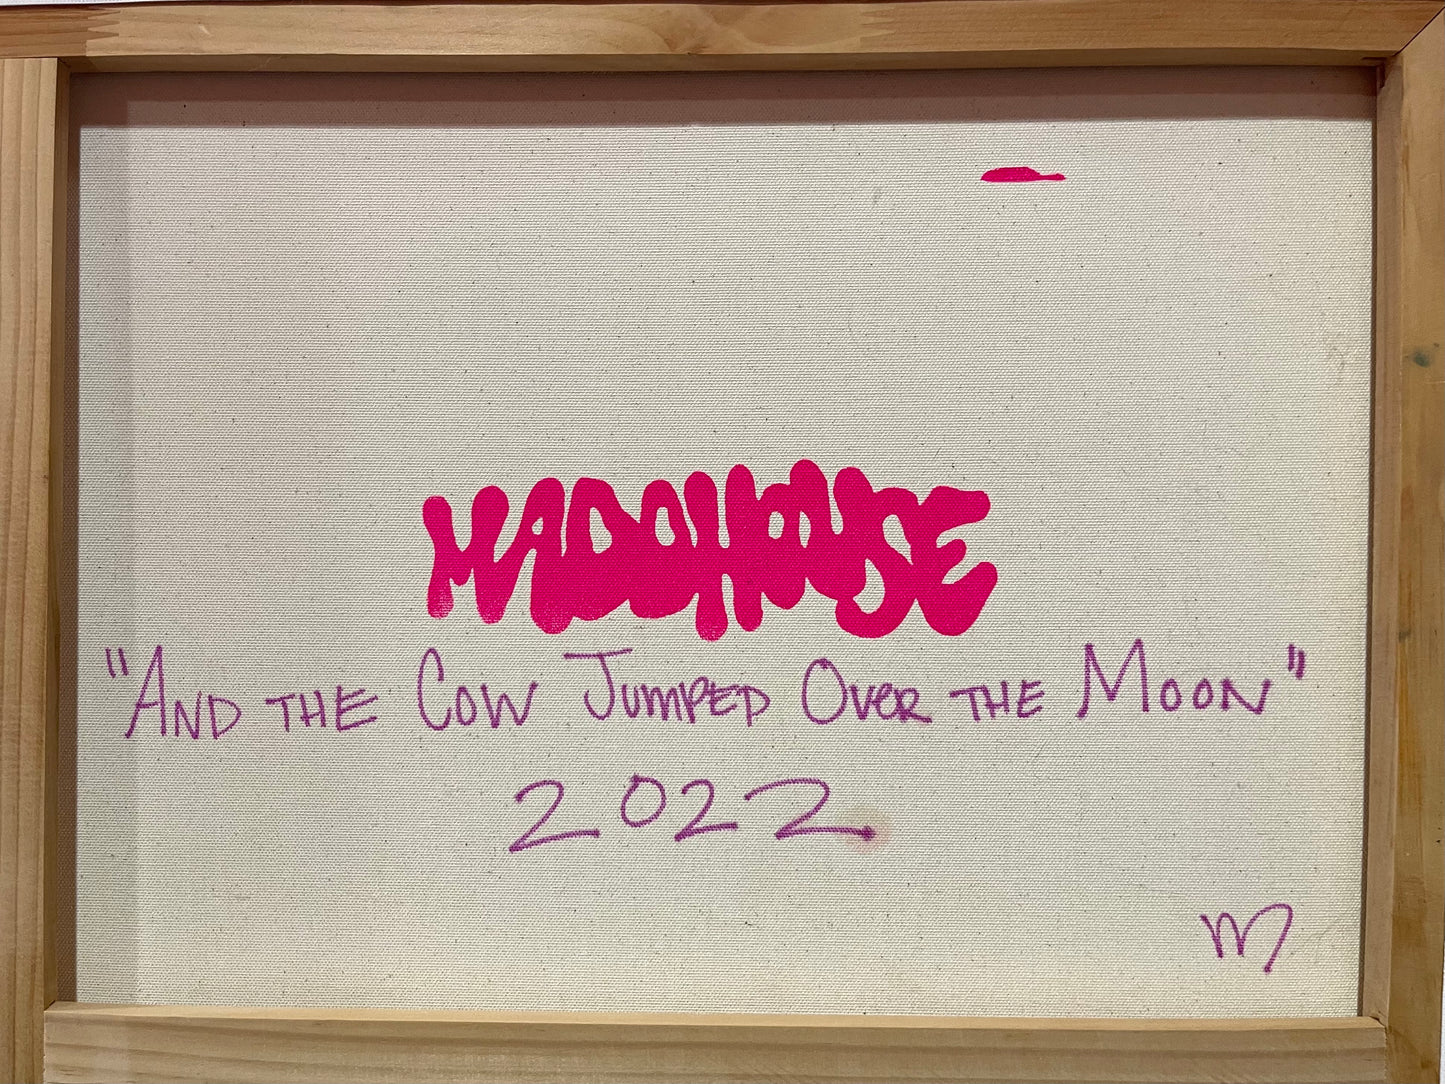 MADDHOUSE
"AND THE COW JUMPED OVER THE MOON"
2022
m